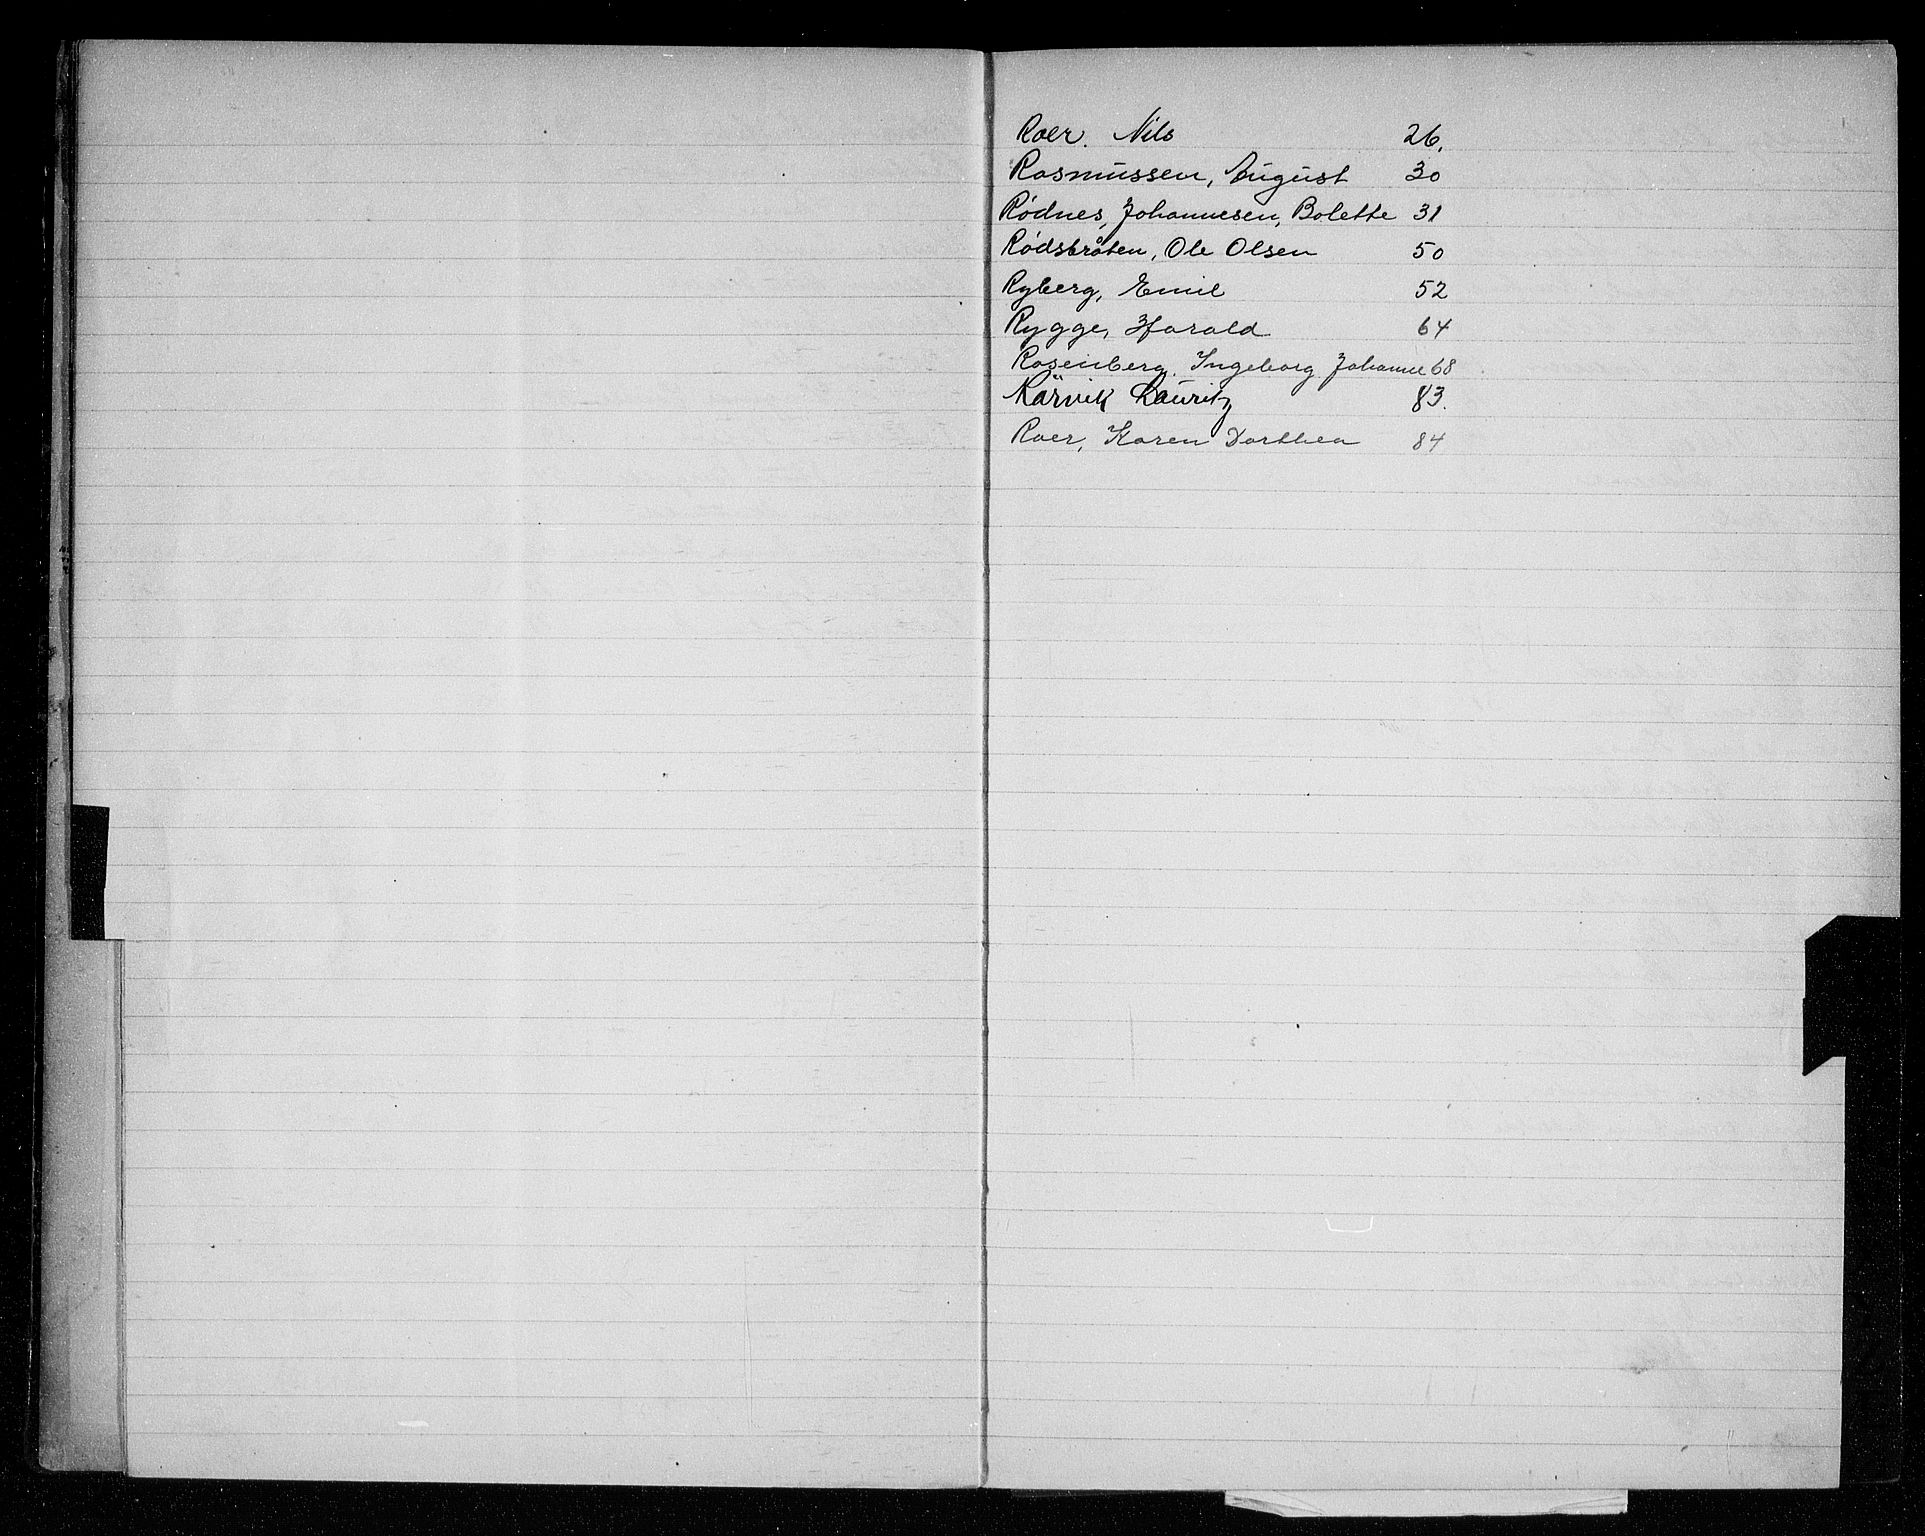 Roer. Nils 26.
Rasmussen, August 30
Rødnes, Johannesen, Bolette 31
Rødsbråten, Ole Olsen 50
Ryberg, Emil 52
Rygge, Harald 64
Rosenberg. Ingeborg Johanne 68
Lauritz 83.
Roer, Karen Dorthea 84